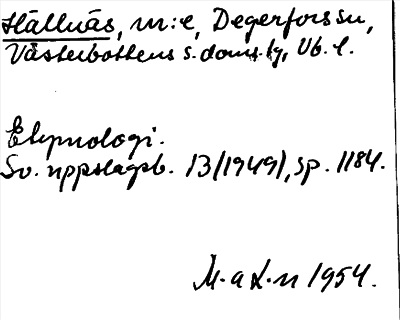 Hällnäs, m:e, Degerfors sn,
Västerbottens s. doms. tg, Vb. l.
Etymologi.
Sv. uppslagsb. 13 (1949), sp. 1184.
M-a L-n 1954.